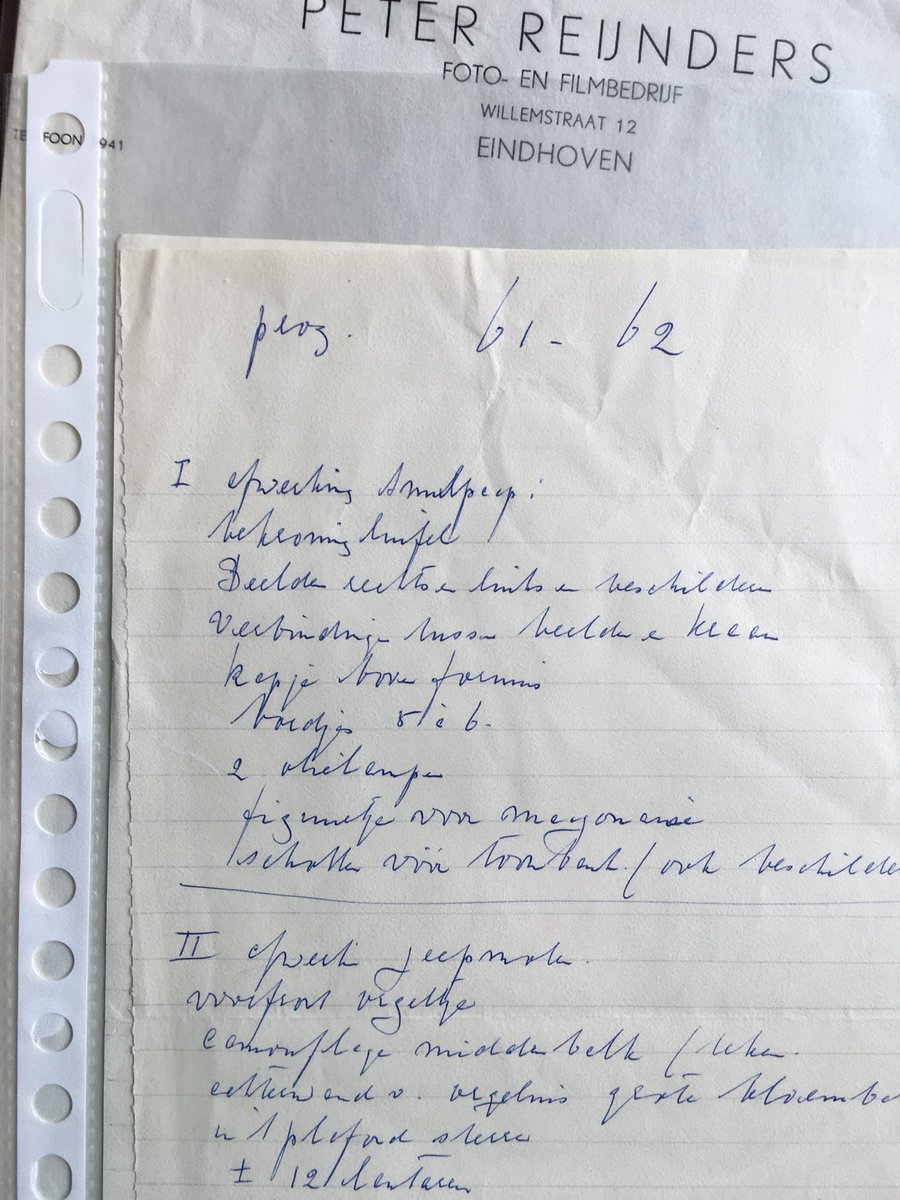 PETER REIJNDERS
FOTO- EN FILMBEDRIJF
WILLEMSTRAAT 12
EINDHOVEN
TE FOON 941
prog. 61 - 62
I afwerking Smulpaap:
bekroning luifel
Beelden rechts en links en beschilderen
Verbindingen tussen beelden en
kapje boven fornuis
bordjes 5 à 6.
2 olielampen
figuurtje voor mayonaise
schotten vóór toonbank / ook beschilderen
II afwerken
voorfront orgeltje
camouflage middenbalk /
achterwand v. orgelnis grote
in 't plafond sterren
± 12 lantaren